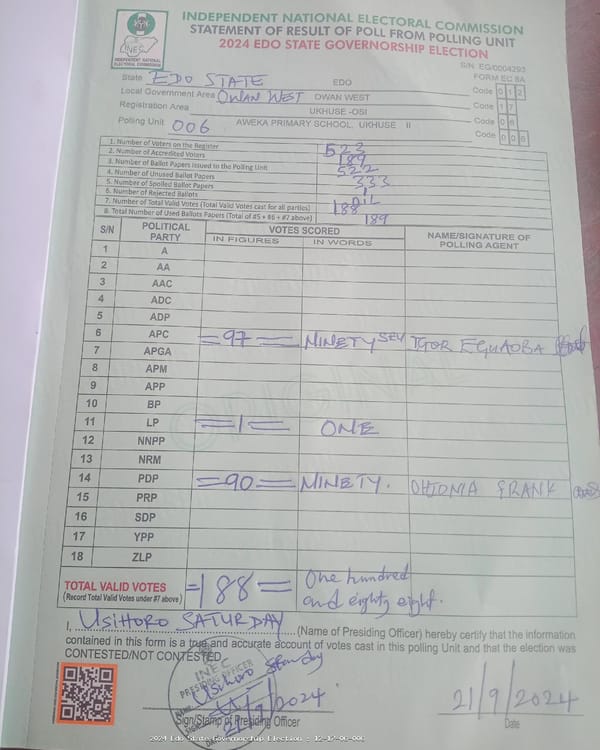 INDEPENDENT NATIONAL ELECTORAL COMMISSION
STATEMENT OF RESULT OF POLL FROM POLLING UNIT
2024 EDO STATE GOVERNORSHIP ELECTION
INEC
INDEPENDENT NATIONAL ELECTORAL COMMISSION
S/N EG/0004293
FORM EC 8A
State EDO STATE EDO Code 0 1 2
Local Government Area OWAN WEST OWAN WEST Code 1 7
Registration Area UKHUSE -OSI Code 0 6
Polling Unit 006 AWEKA PRIMARY SCHOOL, UKHUSE II Code 0 0 6
1. Number of Voters on the Register 523
2. Number of Accredited Voters 189
3. Number of Ballot Papers issued to the Polling Unit 522
4. Number of Unused Ballot Papers 333
5. Number of Spoiled Ballot Papers 1
6. Number of Rejected Ballots NIL
7. Number of Total Valid Votes (Total Valid Votes cast for all parties) 188
8. Total Number of Used Ballots Papers (Total of #5 + #6 + #7 above) 189
S/N POLITICAL PARTY VOTES SCORED NAME/SIGNATURE OF POLLING AGENT
IN FIGURES IN WORDS
1 A
2 AA
3 AAC
4 ADC
5 ADP
6 APC =97= NINETY SEV IGOR EGUAOBA
7 APGA
8 APM
9 APP
10 BP
11 LP =1= ONE
12 NNPP
13 NRM
14 PDP =90= NINETY. FRANK
15 PRP
16 SDP
17 YPP
18 ZLP
TOTAL VALID VOTES =188= One hundred
(Record Total Valid Votes under #7 above) and eighty eight.
I, USIHORO SATURDAY (Name of Presiding Officer) hereby certify that the information
contained in this form is a true and accurate account of votes cast in this polling Unit and that the election was
CONTESTED/NOT CONTESTED
INEC
PRESIDING OFFICER
Usihoro
21/9/2024
21/9/2024
Sign/Stamp of Presiding Officer
Date
2024 Edo State Governorship Election : 12-17-06-006